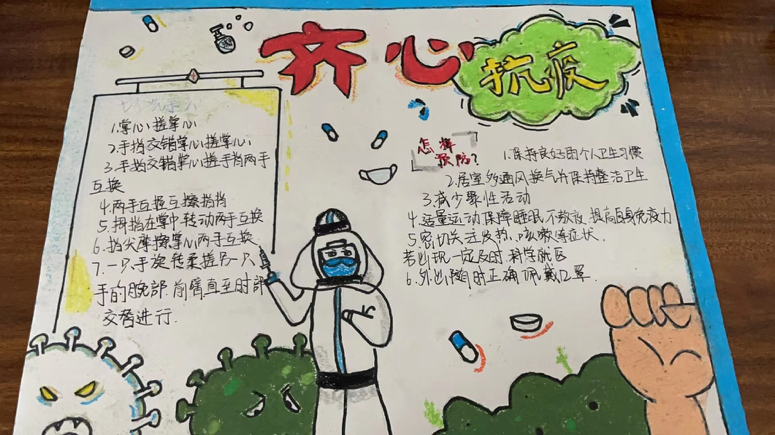 齐心抗疫
1.掌心搓掌心
2.手指交错掌心搓掌心
3.手指交错掌心搓手背两手
互换
4.两手互握互擦指背
5.拇指在掌中转动两手互换
6.指尖摩擦掌心两手互换
7.一只手旋转揉搓另一只
手的腕部.前臂直至肘部
交替进行.
怎样
预防?
1.保持良好的个人卫生习惯
2.居室多通风换气并保持整洁卫生
3.减少聚性活动
4.适量运动保障睡眠,不熬夜,提高自身免疫力
5.密切关注发热、咳嗽等症状,
若出现一定及时.科学就医
6.外出随时正确佩戴口罩